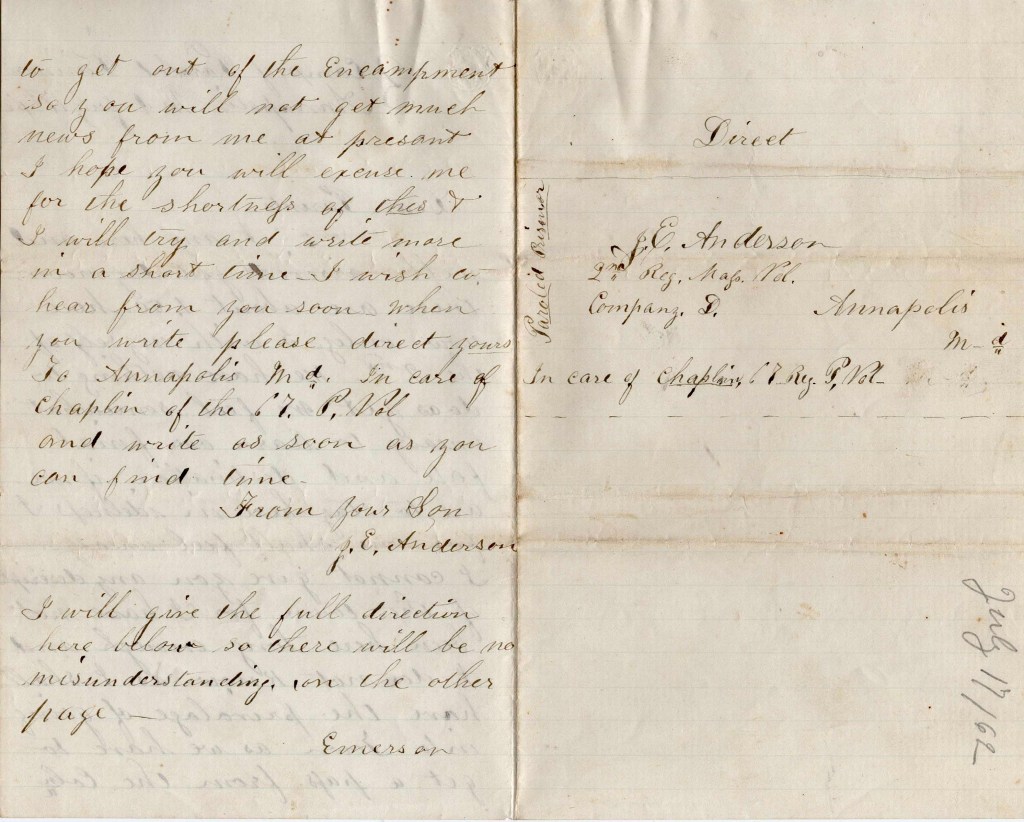 to get out of the Encampment
so you will not get much
news from me at presant
I hope you will excuse me
for the shortness of thes &
I will try and write more
in a short time - I wish to
hear from you soon when
you write please direct yours
To Annapolis Md. In care of
Chaplin of the 67. P. Vol
and write as soon as you
can find time.
From your Son
J. E. Anderson
I will give the full direction
here below so there will be no
misunderstanding. on the other
page —
Emerson
Direct
Paroled Prisoner
J. E. Anderson
2nd Reg. Mass. Vol.
Company. D. Annapolis
M-d
In care of Chaplin, 67 Reg. P. Vol-
July 17/62